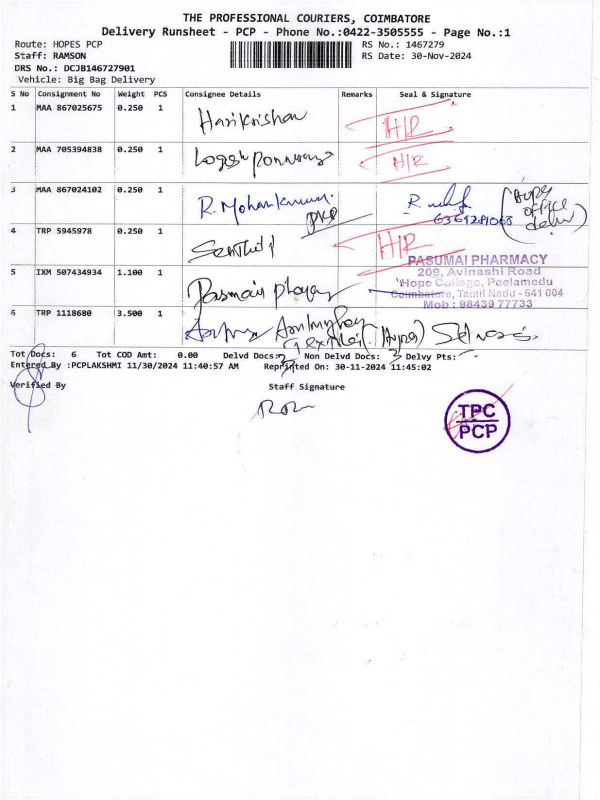 THE PROFESSIONAL COURIERS, COIMBATORE
Delivery Runsheet - PCP - Phone No.:0422-3505555 - Page No.:1
Route: HOPES PCP RS No.: 1467279
Staff: RAMSON RS Date: 30-Nov-2024
DRS No.: DCJB146727901
Vehicle: Big Bag Delivery
S No Consignment No Weight PCS Consignee Details Remarks Seal & Signature
1 MAA 867025675 0.250 1 Harikrishan H/R
2 MAA 705394838 0.250 1 H/R
3 MAA 867024102 0.250 1 R. Mohankumar
4 TRP 5945978 0.250 1 Senthil H/R
PASUMAI PHARMACY
209, Avinashi Road
Hope College, Peelamedu
Coimbatore, Tamil Nadu - 641 004
Mob : 98439 77733
5 IXM 507434934 1.100 1
6 TRP 1118680 3.500 1
Tot Docs: 6 Tot COD Amt: 0.00 Delvd Docs: 3 Non Delvd Docs: 3 Delvy Pts:
Entered By :PCPLAKSHMI 11/30/2024 11:40:57 AM Reprinted On: 30-11-2024 11:45:02
Verified By Staff Signature
TPC
PCP